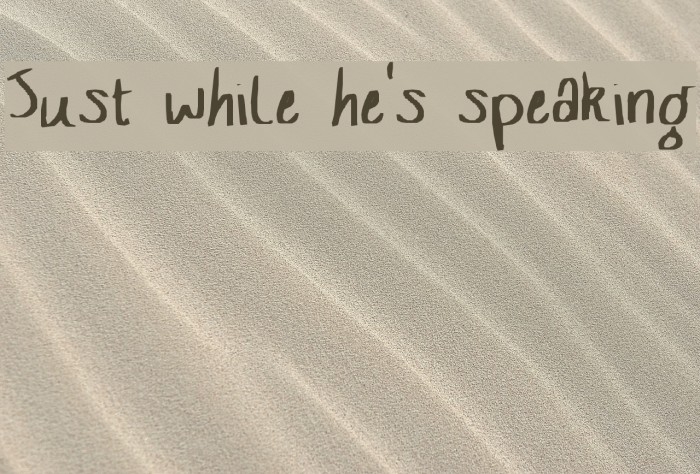 Just while he's speaking